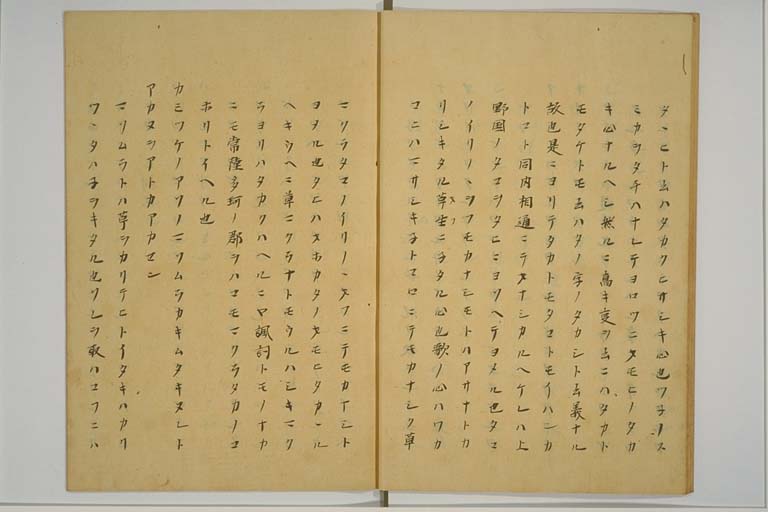 タヽヒト云ハタカクヒサシキ心也ツネノス
ミカヲタチハナレテヨロツニオモヒノタカ
キ心ナルヘシ然ルニ高キ変ヲ云ニハタカト
モタケトモ云ハタノ字ノタカシト云義ナル
故也是ニヨリテタカトモタコトモイハンカ
トコト同内相通ニテヌナシカルヘケレハ上
野国ノタコヲタヒニヨソヘテヨメル也タコ
ノイリノヽヲフモカナシモトハアサナトカ
リシキタル草生ニネタル心也歌ノ心ハワカ
コニハニサシキネトマロニテモカナシク草
マクラタコノイリノヽオフニテモカナシト
ヨメル也タヒハオホカタノオモヒタカヽル
ヘキウヘニ草マクラナトモウルハシキマク
ラヨリハタカクハヘルニヤ諷詞トモノナカ
ニモ常陸多珂ノ郡ヲハコモマクラタカノコ
ホリトイヘル也
カミツケノアソノマソムラカキムタキヌレト
アカヌヲアトカアカセン
マソムラトハ草ヲカリテヒトイタキハカリ
ワヽタハネヲキタル也ソレヲ取ハコフニハ